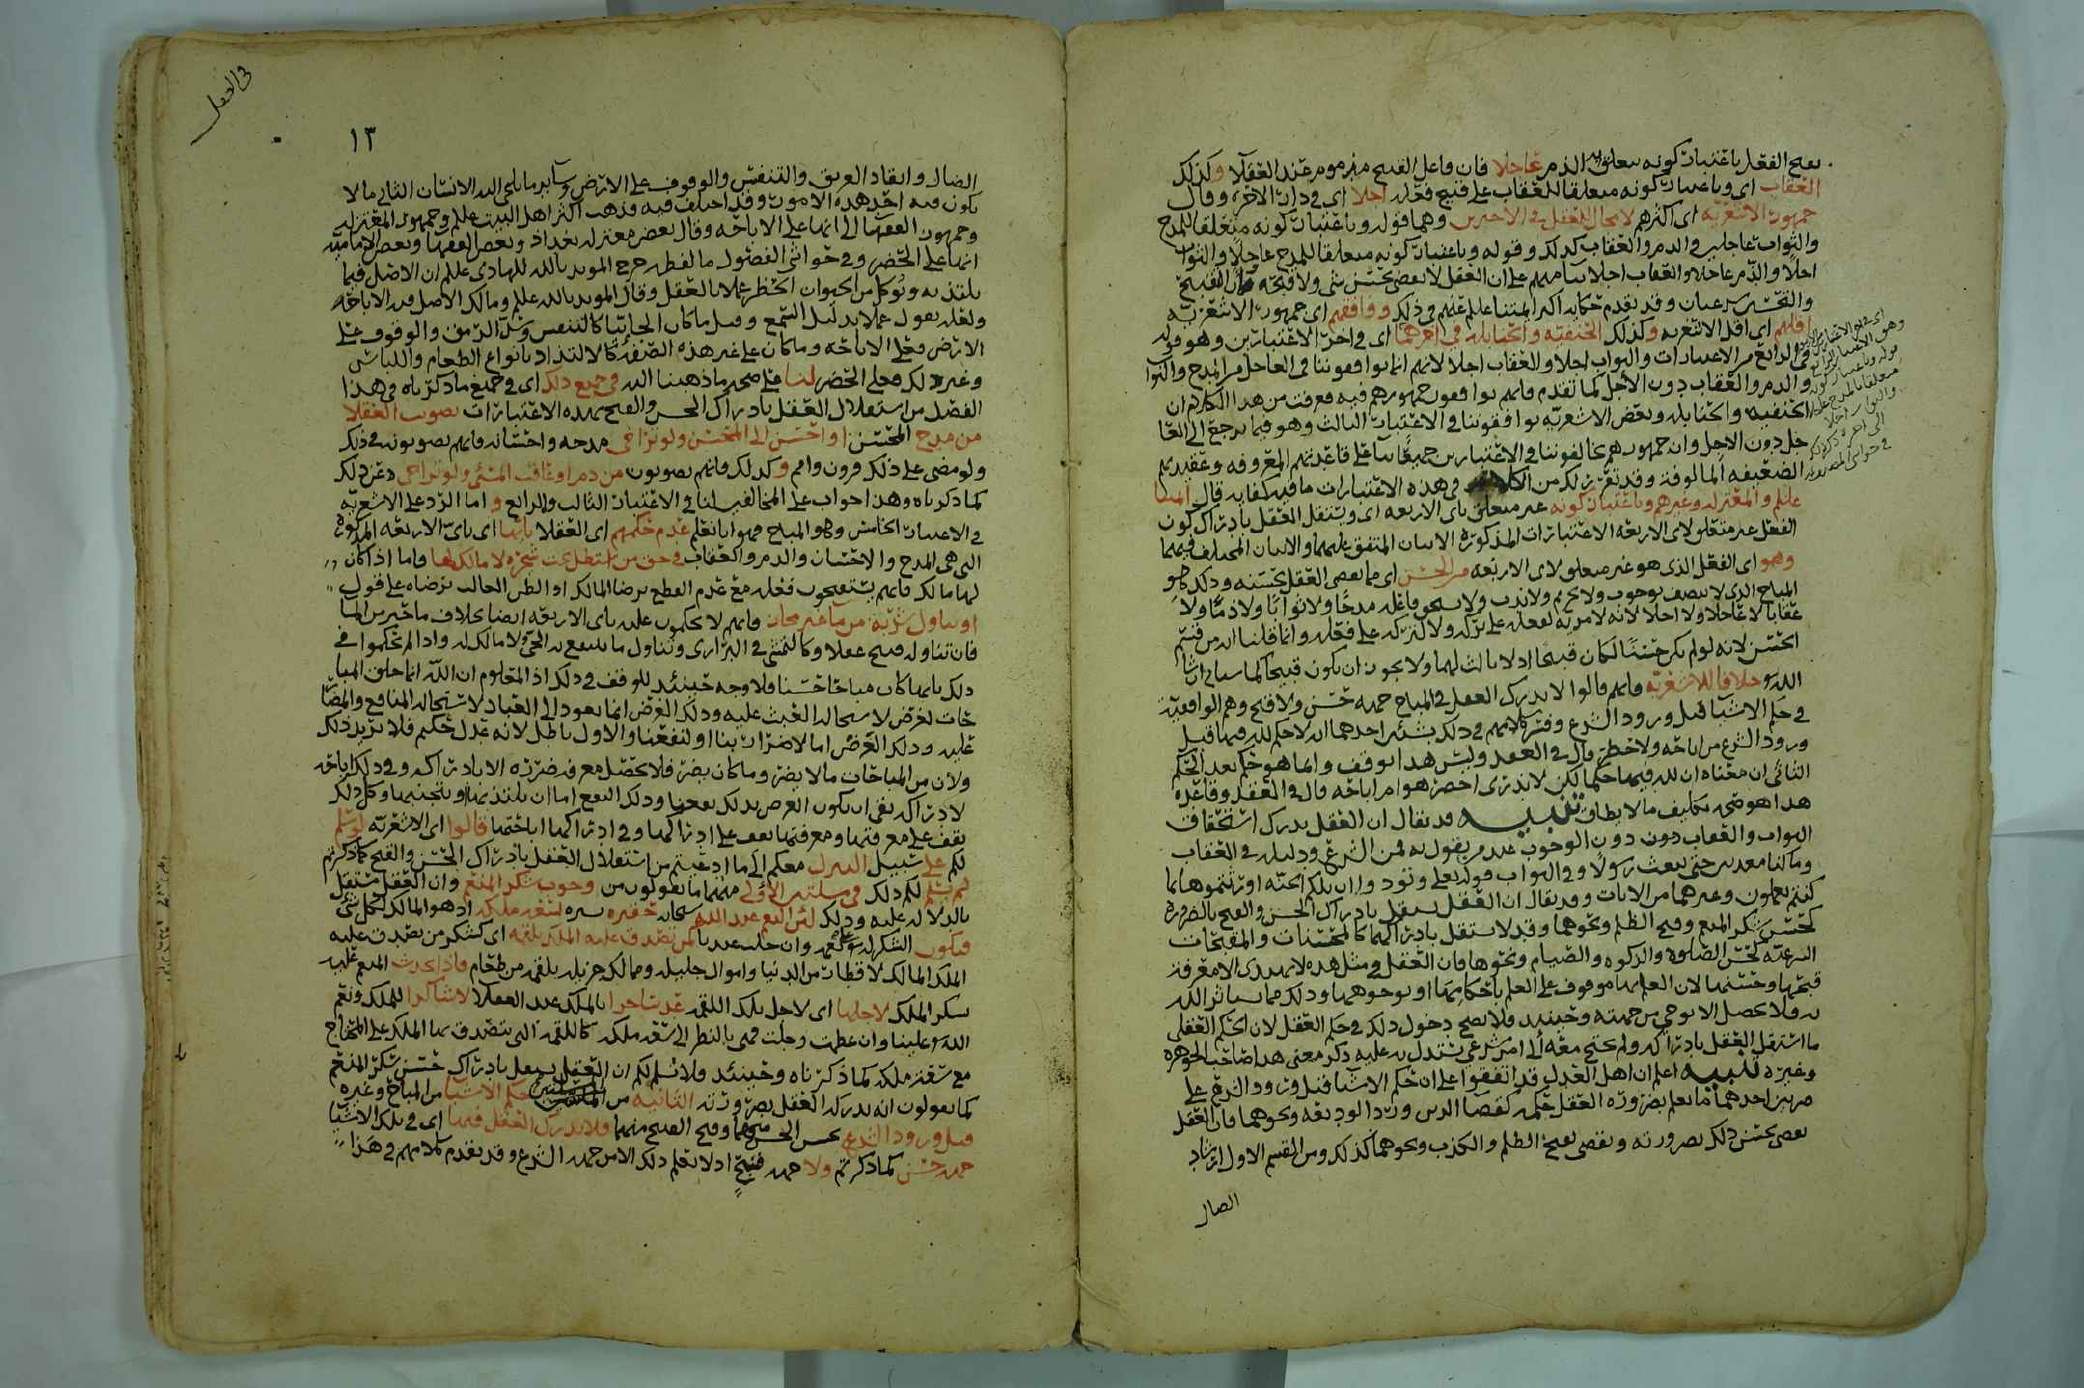 بقبح الفعل باعتبار كونه متعلق الذم عاجلا فان فاعل القبيح مذموم عند العقلا وكذلك
العقاب اى وباعتبار كونه متعلقا للعقاب على قبيح فعله اجلا اى فى دار الاخرة وقال
جمهور الاشعرية اى اكثرهم لا مجال للعقل فى الاخيرين وهما قوله وباعتبار كونه متعلقا للمدح
والثواب عاجلين والذم والعقاب كذلك وقوله وباعتبار كونه متعلقا للمدح عاجلا والثواب
اجلا والذم عاجلا والعقاب اجلا بنا منهم على ان العقل لا يقضى بحسن شى ولا قبحه
وقد تقدم حكايه اكثر ايمتنا عليلم عنهم وذلك ووافقهم اى جمهور الاشعرية
اقلهم اى اقل الاشعريه وكذلك الحنفيه والحنابله فى احدهما اى فى احد الاعتبارين وهو قوله
فى الرابع من الاعتبارات والثواب اجلا والعقاب اجلا لانهم انما يوافقوننا فى العاجل من المدح والثواب
والذم والعقاب دون الاجل كما تقدم فانهم يوافقون جمهورهم فيه فعرفت من هذا الكلام ان
الحنفيه والحنابله وبعض الاشعريه يوافقوننا فى الاعتبار الثالث وهو فيما يرجع الى العا
جل دون الاجل وان جمهورهم يخالفوننا فى الاعتبارين جميعا بنا على قاعدتهم المعروفه وعقيدتهم
الضعيفه المالوفة وقد تقرر لك من الكلام فى هذه الاعتبارات ما فيه كفايه قال ايمتنا
عليلم والمعتزله وغيرهم وباعتبار كونه غير متعلق باى الاربعه اى ويستقل العقل بادراك كون
الفعل غير متعلق لاى الاربعه الاعتبارات المذكورة الاثنان المتفق عليهما والاثنان المختلف فيهما
وهو اى الفعل الذى هو غير متعلق لاى الاربعه من الحسن اى مما يقضى العقل بحسنه وذلك كما هو
المباح الذى لا يتصف بوجوب ولا تحريم ولا ندب ولا يستحق فاعله مدحا ولا ثوابا ولا ذما ولا
عقابا لا عاجلا ولا اجلا لانه لا مزيه لفعله على تركه ولا لتركه على فعله وانما قلنا انه من قسم
الحسن لانه لو لم يكن حسنا لكان قبيحا اذ لا ثالث لهما ولا يجوز ان يكون قبيحا لما سياتى ان شا
الله خلافا للاشعرية فانهم قالوا لا يدرك العقل فى المباح جهه حسن ولا قبح وهم الواقفية
فى حكم الاشيا قبل ورود الشرع وفسر كلامهم فى ذلك بشيئين احدهما ان لا حكم لله فيها قبل
ورود الشرع من اباحه ولا حظر قال فى العقد وليس هذا بوقف وانما هو حكم بعدم الحكم
الثانى ان معناه ان لله فيها حكما لكن لا يدرى احضر هو ام اباحه قال فى العقد وقاعدة
هذا هو تكليف ما لا يطاق تنبيه قد يقال ان العقل يدرك استحقاق
الثواب والعقاب دون دون الوجوب عند من يقول به فمن الشرع ودليله فى العقاب
وما كنا معذبين حتى نبعث رسولا وفى الثواب قوله تعلى ونودوا ان تلكم الجنه اورثتموها بما
كنتم تعملون وغيرهما من الايات وقد يقال ان العقل يستقل بادراك الحسن والقبح بالضرورة
كحسن شكر المنعم وقبح الظلم ونحوهما وقد لا يستقل بادراكهما كالمحسنات والمقبحات
الشرعيه كحسن الصلوة والزكوه والصيام ونحوها فان العقل فى مثل هذه لا يهتدى الا معرفة
قبحها وحسنها لان العلم بها موقوف على العلم باحكامها او بوجوهها وذلك مما يستاثر الله
به فلا يحصل الا بوحى من جهته وحينئذ فلا يصح دخول ذلك فى حكم العقل لان الحكم العقلى
ما استقل العقل بادراكه ولم يحتج معه الى امر شرعى يستدل به عليه ذكر معنى هذا صاحب الجوهره
وغيره تنبيه اعلم ان اهل العدل قد اتفقوا على ان حكم الاشيا قبل ورود الشرع على
ضربين احدهما ما يعلم بضرورة العقل حكمه كقضا الدين ورد الوديعه ونحوهما فان العقل
يقضى بحسن ذلك بضرورته ويقضى بقبح الظلم والكذب ونحوهما كذلك ومن القسم الاول ارشاد
الضال
فى العقل
١٣
الضال وانقاذ الغريق والتنفس والوقوف على الارض وساير ما يلجى اليه الانسان الثانى ما لا
يكون فيه احد هذه الامور وقد اختلف فيه فذهب اكثر اهل البيت عليلم وجمهور المعتزله
وجمهور الفقها الى انها على الاباحه وقال بعض معتزله بغداذ وبعض الفقها وبعض الاماميه
انها على الحضر وفى حواشى الفصول ما لفظه خرج الموید بالله للهادى عليلم ان الاصل فيما
يلتذ به ويوكل من الحيوان الحظر عملا بالعقل وقال الموید بالله عليلم ومالك الاصل فيه الاباحه
ولعله يقول عملا بدليل السمع وقيل ما كان الجائيا كالتنفس وسد الرمق والوقوف على
الارض فعلى الاباحه وما كان على غير هذه الصفة كالالتذاذ بانواع الطعام واللباس
وغير ذلك فعلى الحضر لنا على صحه ما ذهبنا اليه فى جميع ذلك اى فى جميع ما ذكرناه فى هذا
الفصل من استقلال العقل بادراك الحسن والقبح بهذه الاعتبارات تصويب العقلا
من مدح المحسن او احسن الى المحسن ولو تراخى مدحه واحسانه فانهم يصوبونه فى ذلك
ولو مضى على ذلك قرون وامم وكذلك فانهم يصوبون من ذم او عاقب المسئ ولو تراخى ذلك
كما ذكرناه وهذا جواب على المخالفين لنا فى الاعتبار الثالث والرابع واما الرد على الاشعريه
فى الاعتبار الخامس وهو المباح فهو انا نعلم عدم حكمهم اى العقلا بايها اى باى الاربعه المذكورة
التى هى المدح والاحسان والذم والعقاب فى حق من استظل تحت شجرة لا مالك لها فاما اذا كان
لها مالك فانهم يستقبحون فعله مع عدم القطع برضا المالك او الظن الغالب برضاه على قول
او تناول شربة من ما غير محاز فانهم لا يحكمون عليه باى الاربعه ايضا بخلاف ما حيز من الما
فان تناوله قبيح عقلا وكالتمشى فى البرارى وتناول ما ينتفع به الحى ولا مالك له واذا لم يحكموا فى
ذلك بايها كان مباحا حسنا فلا وجه حينئذ للوقف فى ذلك اذ المعلوم ان الله انما خلق المبا
حات لغرض لاستحاله العبث عليه وذلك الغرض انما يعود الى العباد لاستحاله المنافع والمضار
عليه وذلك الغرض اما لاضرار بنا او لنفعنا والاول باطل لانه عدل حكيم فلا يريد ذلك
ولان من المباحات ما لا يضر وما كان يضر فلا تحصل معرفه ضرره الا بادراكه وفى ذلك اباحه
لادراكه بقى ان يكون الغرض بذلك نفعنا وذلك النفع اما ان نلتذ بها او نتجنبها وكل ذلك
يقف على معرفتها ومعرفتها تقف على ادراكها وفى ادراكها اباحتها قالوا اى الاشعريه لو سلم
لكم على سبيل التنزل معكم الى ما ادعيتم من استقلال العقل بادراك الحسن والقبح كما ذكرتم
لم نسلم لكم ذلك فى مسئلتين الاولى منهما ما تقولون من وجوب شكر المنعم وان العقل مستقل
بالدلاله عليه وذلك لئن النعم عند الله سبحانه حقيره يسيره لسعه ملكه اذ هو المالك لكل شى
فيكون الشكر له وان جلت عندنا كمن تصدق عليه الملك بلقمه اى كشكر من تصدق عليه
الملك المالك لاقطار من الدنيا واموال جليله وممالك جزيله بلقمه من طعام فاذا تحدث المنعم عليه
بشكر الملك لاجلها اى لاجل تلك اللقمه عد ساخرا بالملك عند العقلا لا شاكرا للملك ونعم
الله علينا وان عظمت وجلت فهى بالنظر الى سعه ملكه كاللقمه التى يتصدق بها الملك على المحتاج
مع سعه ملكه كما ذكرناه وحينئذ فلا نسلم لكم ان العقل يستقل بادراك حسن شكر المنعم
كما تقولون انه يدركه العقل بضرورته الثانيه من المسئلتين حكم الاشيا من المباح وغيره
قبل ورود الشرع بحسن الحسن منهما وقبح القبيح منهما فلا يدرك العقل فيها اى فى تلك الاشيا
جهه حسن كما ذكرتم ولا جهه قبح اذ لا نعلم ذلك الا من جهه الشرع وقد تقدم كلامهم فى هذا